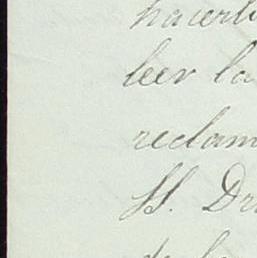 hacerl
leer la
reclam
H. Dr